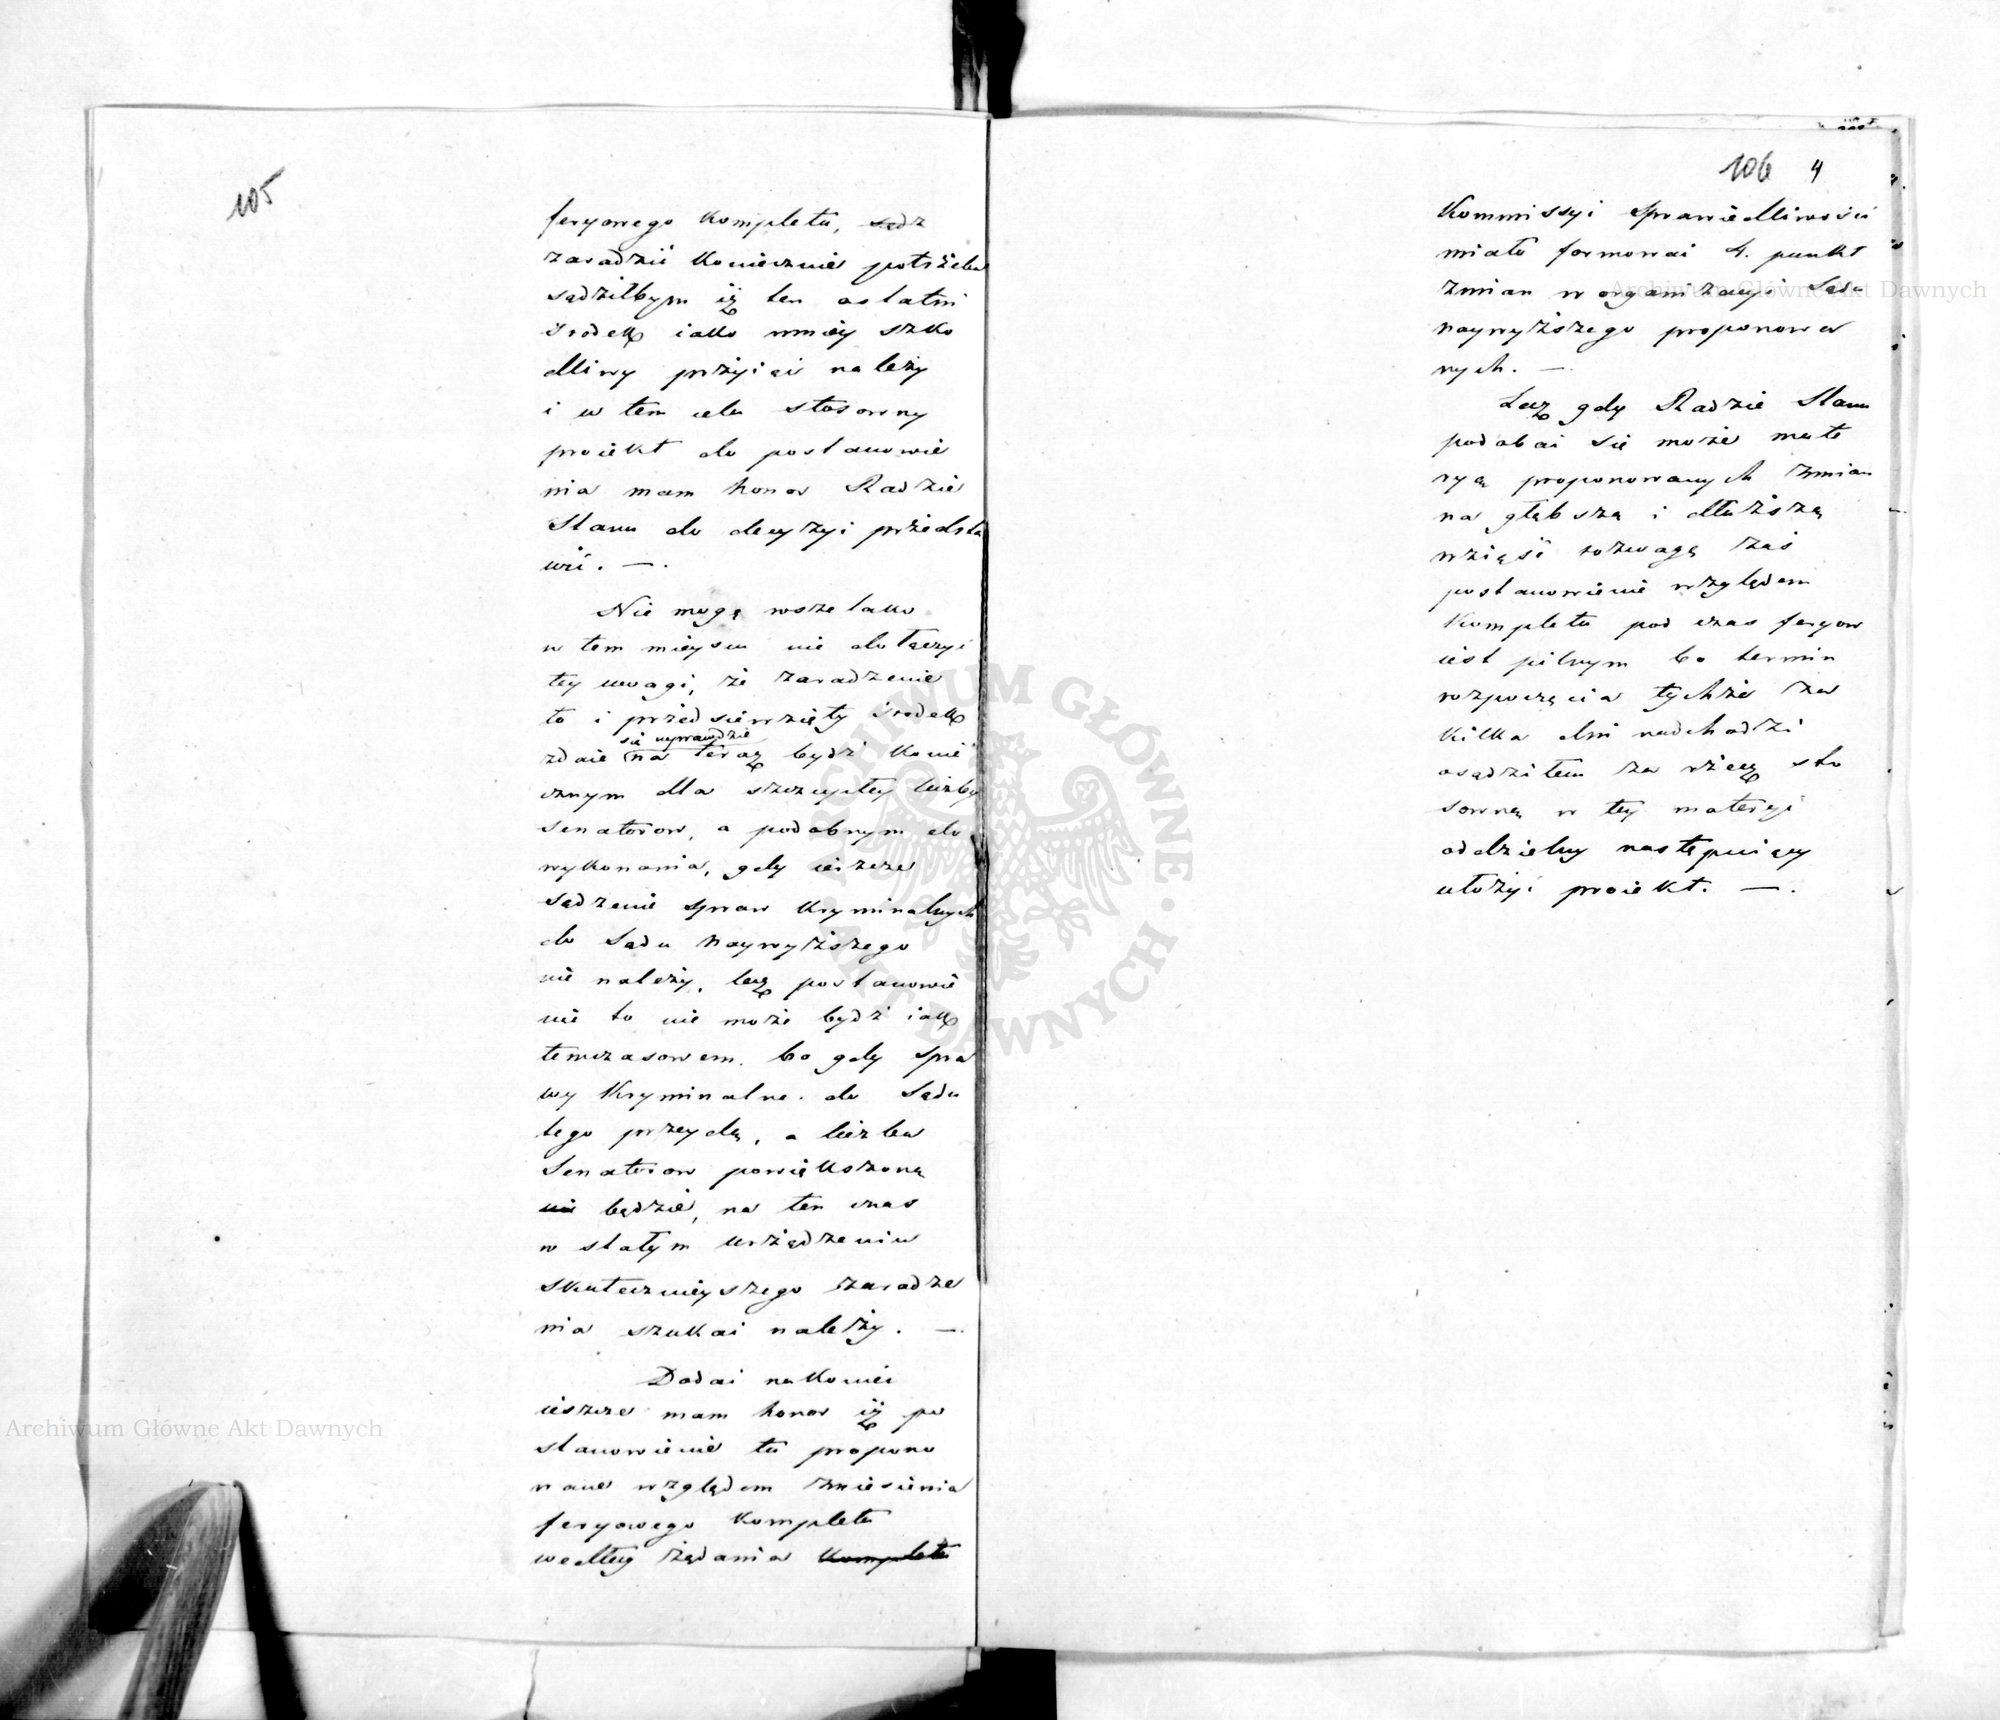 105
feryowego kompletu, sądz
zaradzić koniecznie potrzeba
sądziłbym iż ten ostatni
środek iako mniey szko
dliwy przyiąć należy
i w tem celu stosowny
proiekt do postanowie
nia mam honor Radzie
Stanu do decyzyi przedsta
wić. —.
Nie mogę wszelako
w tem mieyscu nie dołączyć
tey uwagi, że zaradzenie
to i przedsięwzięty środek
się wprawdzie
zdaie na teraz bydź konie
cznym dla szczupłey liczby
Senatorow, a podobnym do
wykonania, gdy ieszcze
sądzenie spraw kryminalnych
do Sądu Naywyższego
nie należy, lecz postanowie
nie to nie może bydź iak
temczasowem. bo gdy spra
wy kryminalne. do Sądu
tego przeydą, a liczba
Senatorow powiększoną
nie będzie, na ten czas
w stałym urządzeniu
skutecznieyszego zaradze
nia szukać należy. —.
Dodać nakoniec
ieszcze mam honor iż po
stanowienie tu propono
wane względem zniesienia
feryowego kompletu
według żądania kompletu
106 4
Kommissyi Sprawiedliwości
miało formować 4. punkt
zmian w organizacyi Sądu
naywyższego proponowa
nych. —.
Lecz gdy Radzie Stanu
podobać się może mate
ryą proponowanych zmian
na głębszą i dłuższą
wziąść rozwagę zaś
postanowienie względem
kompletu pod czas feryow
iest pilnym bo termin
rozpoczęcia tychże za
kilka dni nadchodzi
osądziłem za rzecz sto
sowną w tey materyi
oddzielny następuiący
ułożyć proiekt. —.
Archiwum Główne Akt Dawnych
Archiwum Główne Akt Dawnych
ARCHIWUM GŁÓWNE AKT DAWNYCH